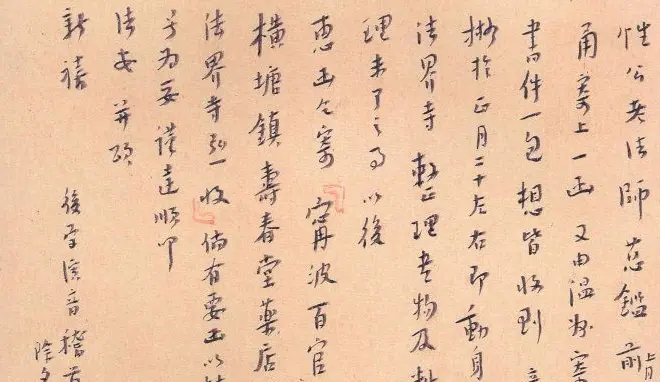 性公老法師慈鑑前上月
甬寄上一函又由溫州寄
書件一包想皆收到
擬於正月二十左右即動身
法界寺整理書物及料
理未了之事以後
惠函乞寄寧波百官
橫塘鎮壽春堂藥店
法界寺弘一收倘有要函以
為妥謹達順叩
法安并頌
新禧
後學演音稽首
除夕